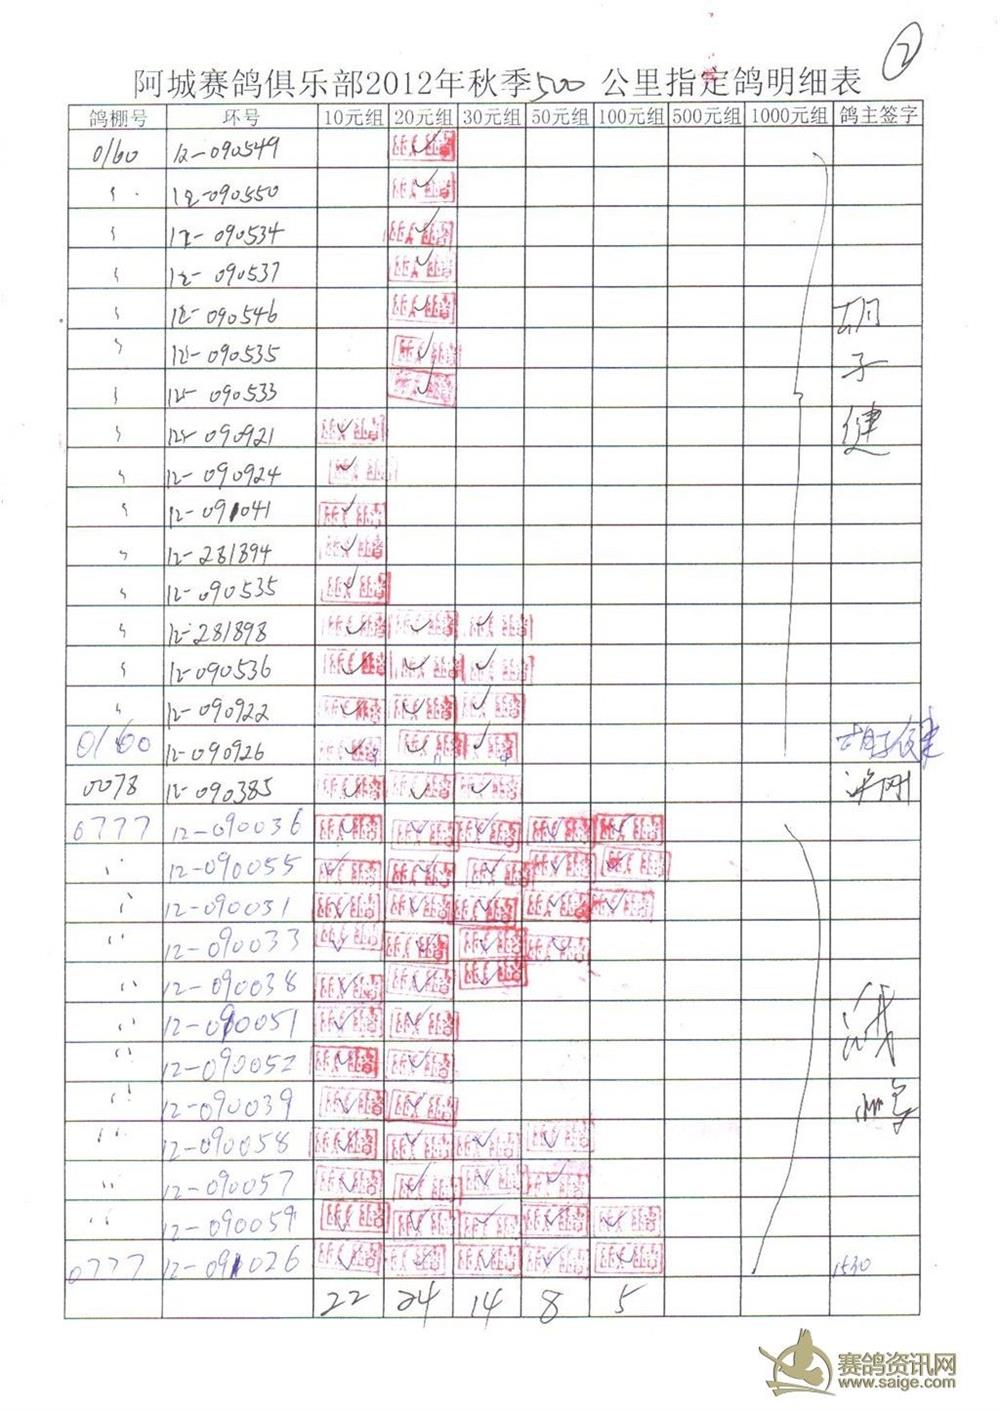 ②
阿城赛鸽俱乐部2012年秋季500 公里指定鸽明细表
鸽棚号 环号 10元组 20元组 30元组 50元组 100元组 500元组 1000元组 鸽主签字
0160 12-090549 ✓
〃 12-090550 ✓
〃 12-090534 ✓
〃 12-090537 ✓
〃 12-090546 ✓ 胡
〃 12-090535 ✓ 子
〃 12-090533 ✓
〃 12-090921 ✓ 健
〃 12-090924 ✓
〃 12-091041 ✓
〃 12-281894 ✓
〃 12-090535 ✓
〃 12-281898 ✓ ✓ ✓
〃 12-090536 ✓ ✓ ✓
〃 12-090922 ✓ ✓ ✓
0160 12-090926 ✓ ✓ ✓ 胡子健
0078 12-090385 ✓ ✓ ✓
0777 12-090036 ✓ ✓ ✓ ✓ ✓
〃 12-090055 ✓ ✓ ✓ ✓ ✓
〃 12-090031 ✓ ✓ ✓ ✓ ✓
〃 12-090033 ✓ ✓ ✓ ✓
〃 12-090038 ✓ ✓ ✓
〃 12-090051 ✓ ✓
〃 12-090052 ✓ ✓
〃 12-090039 ✓ ✓
〃 12-090058 ✓ ✓ ✓ ✓
〃 12-090057 ✓ ✓ ✓ ✓
〃 12-090059 ✓ ✓ ✓ ✓ ✓
0777 12-091026 ✓ ✓ ✓ ✓ ✓ 1530
22 24 14 8 5
赛鸽资讯网
www.saige.com